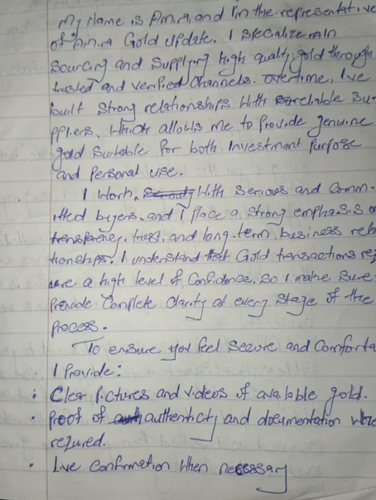 My Name is Amira, and I'm the representative
of Amira Gold update. I specialize in
Sourcing and Supplying high quality gold through
trusted and verified Channels. overtime, I've
built Strong relationships With reliable Su-
ppliers, Which allows me to Provide genuine
gold Suitable for both Investment Purpose
and Personal use.
I Work, With Serious and Comm-
itted buyers, and I place a strong emphasis o
transparency, trust, and long-term business rela
tionships. I understand that Gold transactions req
ure a high level of Confidence, So I make Sure
Provide Complete Clarity at every Stage of the
Process.
To ensure you feel Secure and Comforta
I Provide:
• Clear Pictures and videos of available gold.
• Proof of authenticity and documentation Where
required.
• Live Confirmation When necessary